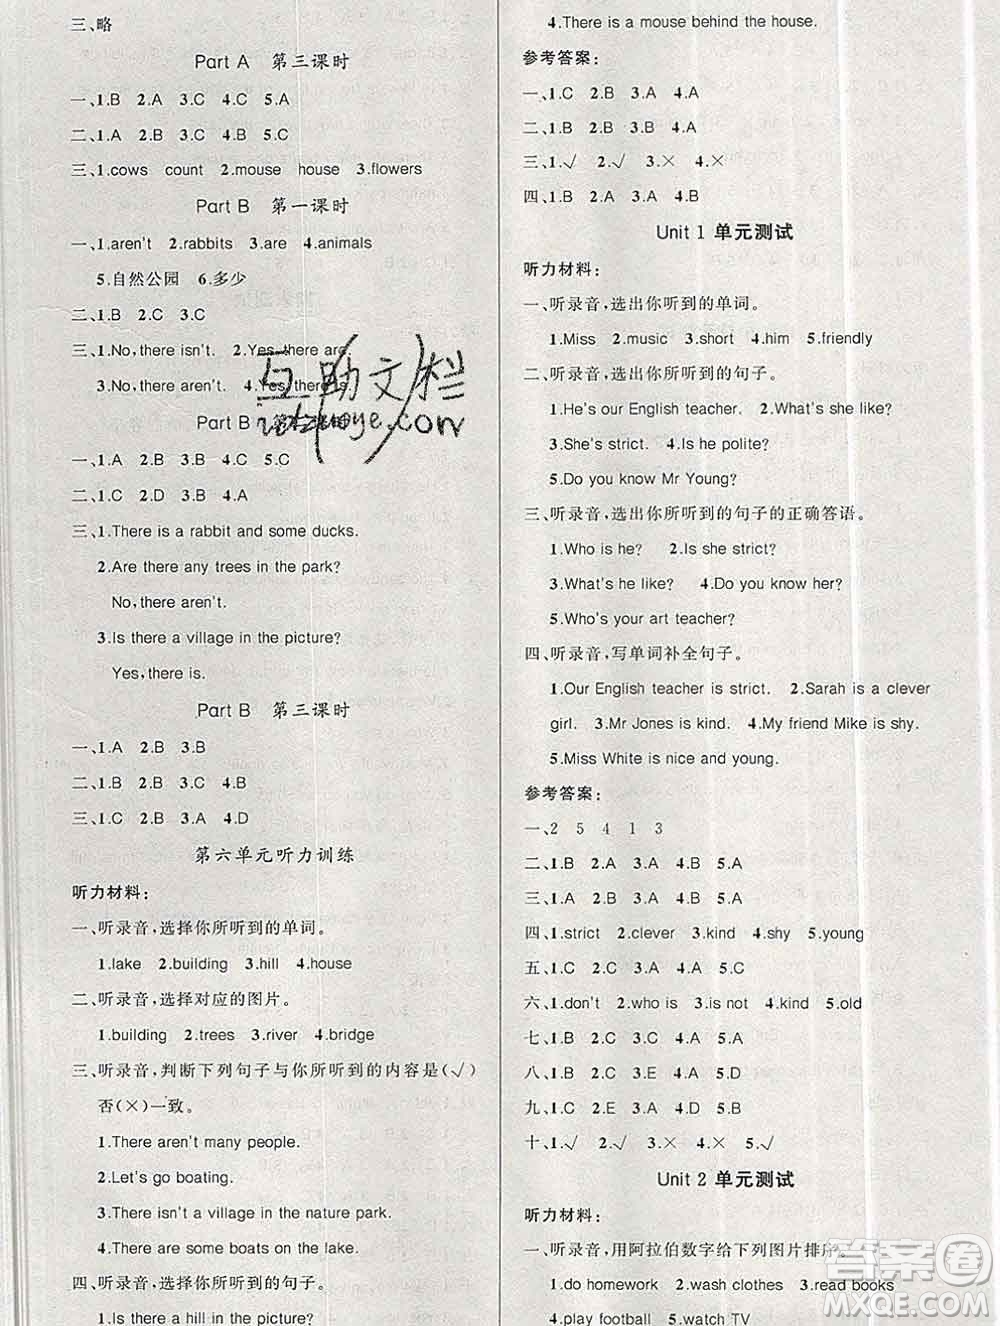 三、略
Part A 第三课时
一、1.B 2.A 3.C 4.C 5.A
二、1.A 2.B 3.C 4.B 5.C
三、1.cows count 2.mouse house 3.flowers
Part B 第一课时
一、1.aren't 2.rabbits 3.are 4.animals
5.自然公园 6.多少
二、1.B 2.C 3.C
三、1.No, there isn't. 2.Yes, there are.
3.No, there aren't. 4.Yes, there is.
Part B
一、1.A 2.B 3.C 4.B 5.C
二、1.C 2.D 3.B 4.A
三、1.There is a rabbit and some ducks.
2.Are there any trees in the park?
No, there aren't.
3.Is there a village in the picture?
Yes, there is.
Part B 第三课时
一、1.A 2.B 3.B
二、1.B 2.D 3.C 4.B
三、1.C 2.B 3.A 4.D
第六单元听力训练
听力材料:
一、听录音,选择你所听到的单词。
1.lake 2.building 3.hill 4.house
二、听录音,选择对应的图片。
1.building 2.trees 3.river 4.bridge
三、听录音,判断下列句子与你所听到的内容是(√)
否(×)一致。
1.There aren't many people.
2.Let's go boating.
3.There isn't a village in the nature park.
4.There are some boats on the lake.
四、听录音,选择你所听到的句子。
1.Is there a hill in the picture?
4.There is a mouse behind the house.
参考答案:
一、1.C 2.B 3.A 4.A
二、1.B 2.B 3.B 4.A
三、1.√ 2.√ 3.× 4.×
四、1.B 2.A 3.A 4.B
Unit 1 单元测试
听力材料:
一、听录音,选出你听到的单词。
1.Miss 2.music 3.short 4.him 5.friendly
二、听录音,选出你所听到的句子。
1.He's our English teacher. 2.What's she like?
3.She's strict. 4.Is he polite?
5.Do you know Mr Young?
三、听录音,选出你所听到的句子的正确答语。
1.Who is he? 2.Is she strict?
3.What's he like? 4.Do you know her?
5.Who's your art teacher?
四、听录音,写单词补全句子。
1.Our English teacher is strict. 2.Sarah is a clever
girl. 3.Mr Jones is kind. 4.My friend Mike is shy.
5.Miss White is nice and young.
参考答案:
一、2 5 4 1 3
二、1.B 2.B 3.A 4.B 5.A
三、1.A 2.B 3.A 4.B 5.A
四、1.strict 2.clever 3.kind 4.shy 5.young
五、1.C 2.C 3.A 4.A 5.C
六、1.don't 2.who is 3.is not 4.kind 5.old
七、1.B 2.C 3.A 4.B 5.A
八、1.B 2.C 3.E 4.A 5.D
九、1.C 2.E 3.A 4.B 5.D
十、1.√ 2.√ 3.× 4.× 5.√
Unit 2 单元测试
听力材料:
一、听录音,用阿拉伯数字给下列图片排序。
1.do homework 2.wash clothes 3.read books
4.play football 5.watch TV
互助文栏
答案圈
MXQE.COM